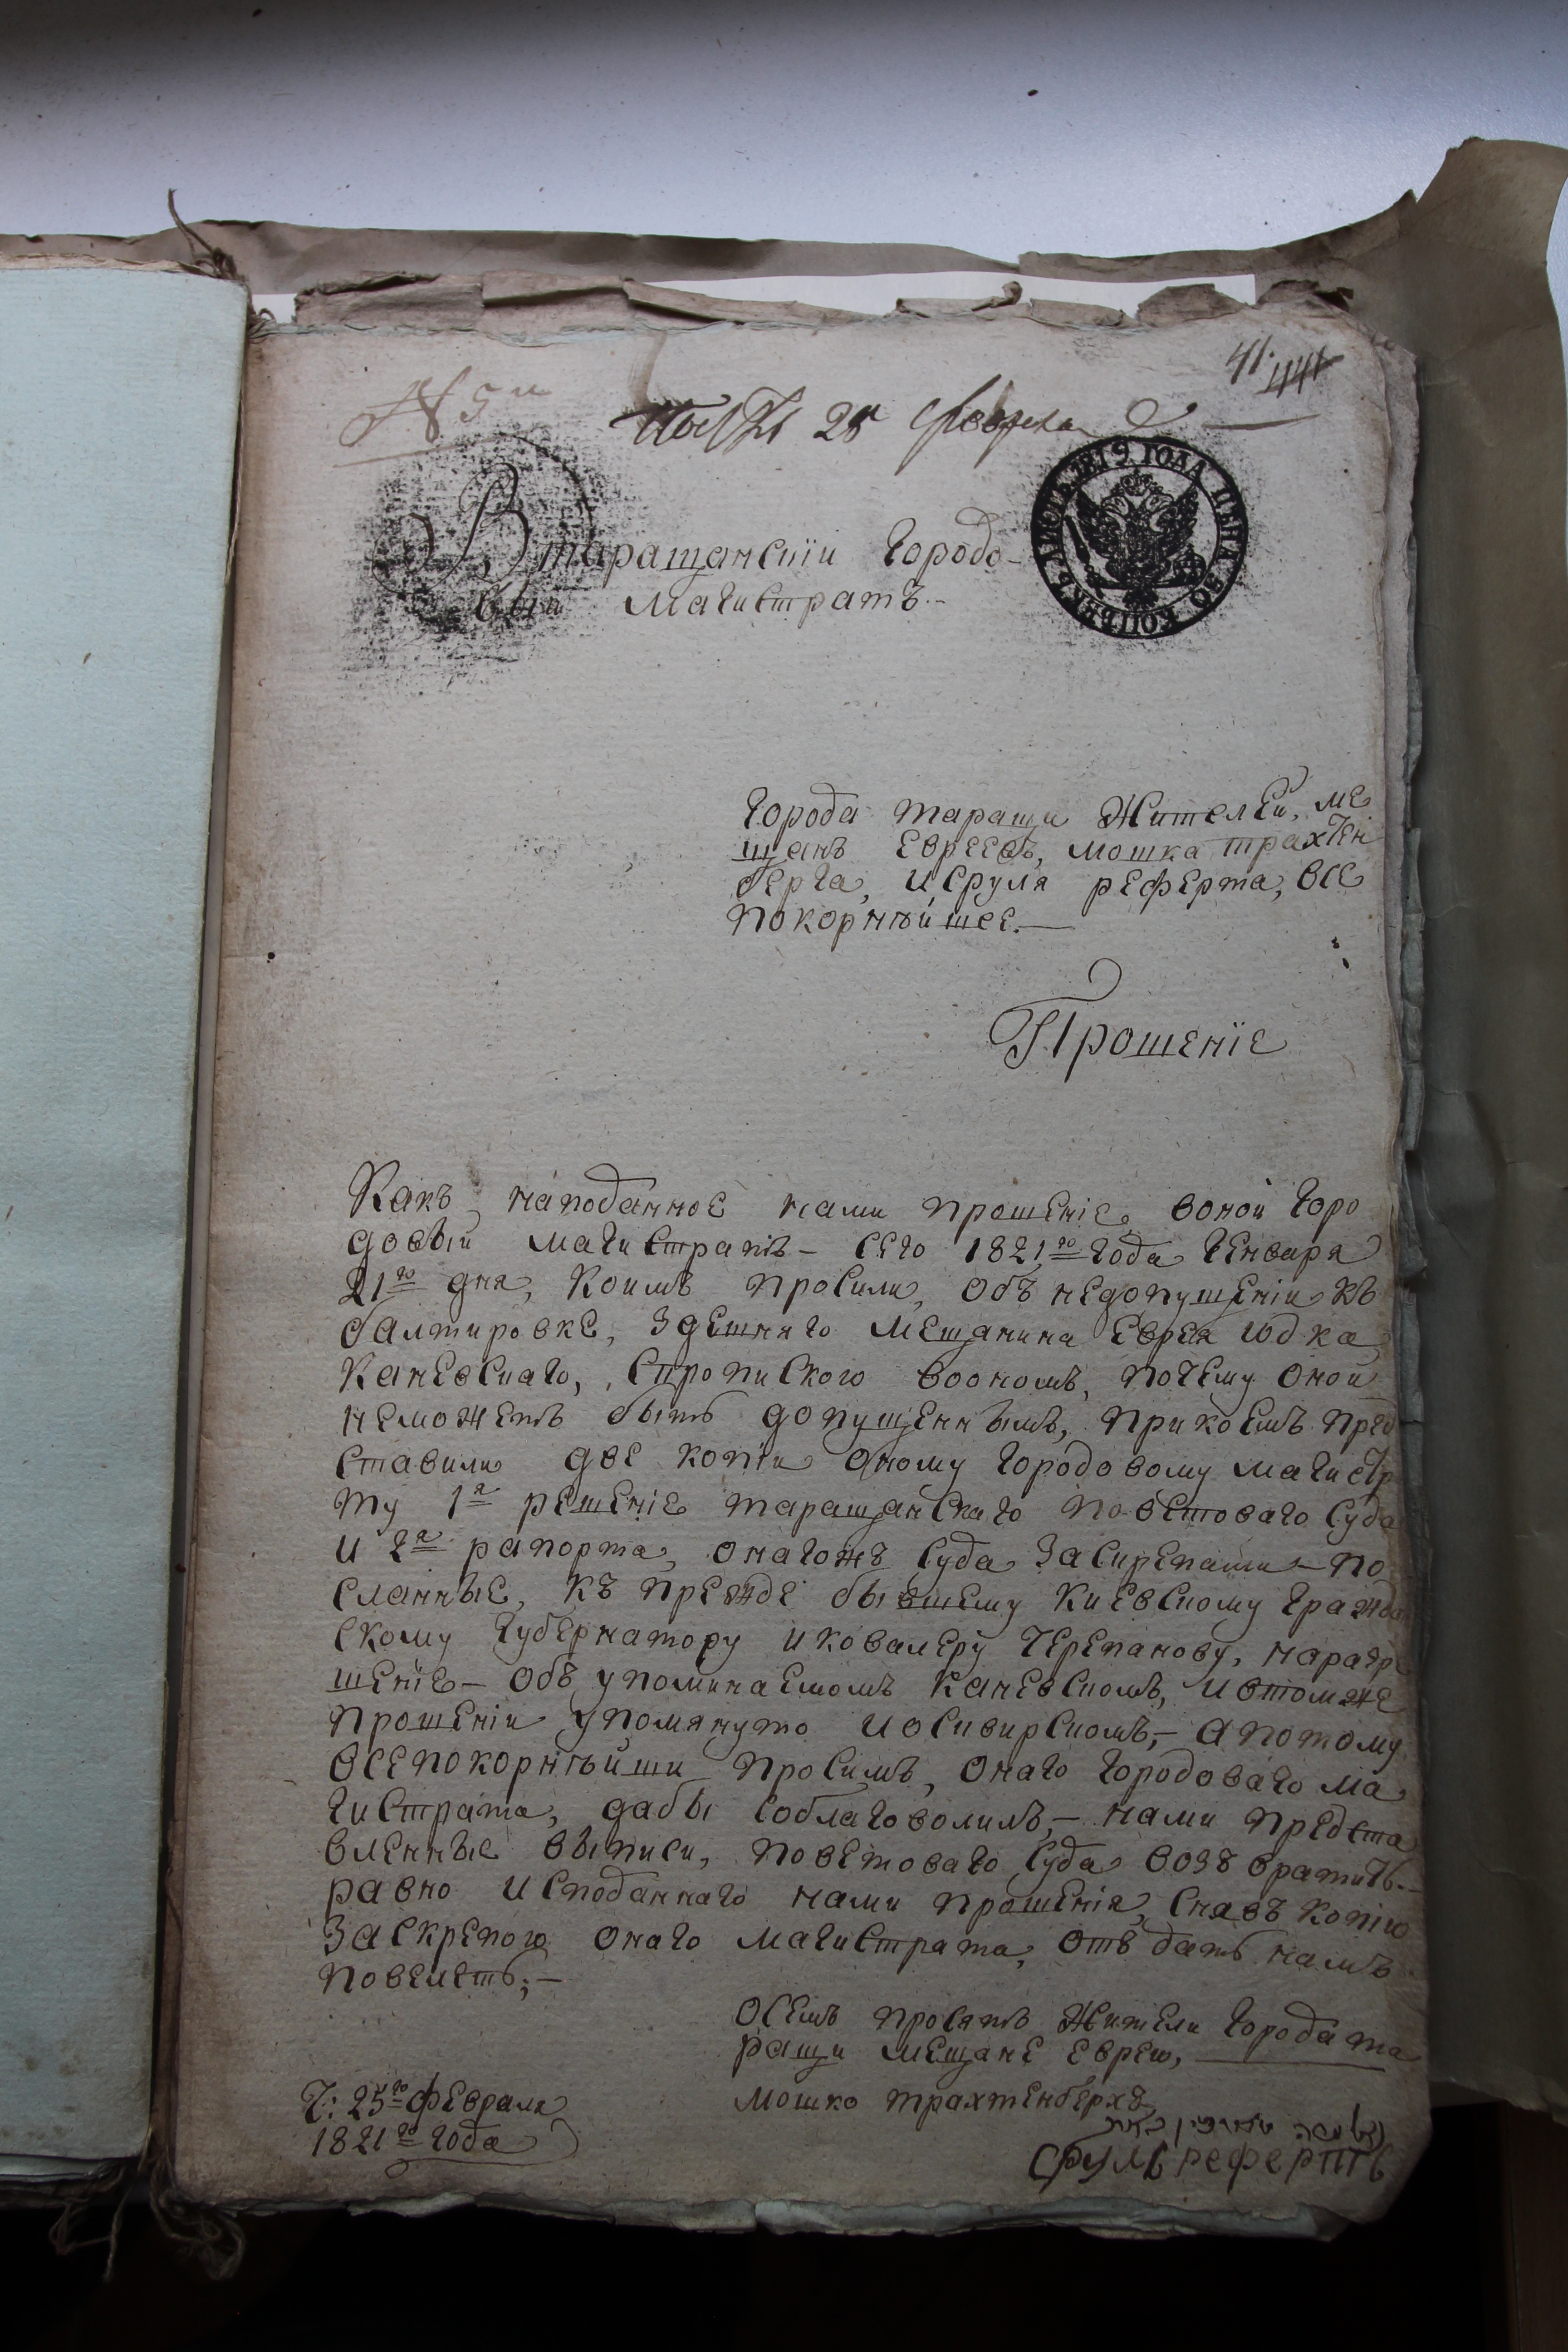 41. 44
№ 5й
25 Февраля
1819 ГОДА ЦЕНА 50 КОПѢЕКЪ
В таращанскїи Городо-
вый Магистратъ.-
Города таращи Жителей, ме
щанъ Евреевъ, мошка трахтен
берга, Исруля реферта, все
покорнѣйшее.—
Прошенїе
Какъ наподанное нами прошенїе воной Горо
довый магистратъ- сего 1821го Года Генваря
21го дня, Коимъ просили, объ недопущенїи къ
балтировке, здешняго мещанина Еврея Юдка
Каневскаго, спропиского воономъ, почему оной
неможетъ быть допущеннымъ, прикоемъ пред
ставили две копїи оному Городовому магистр
ту 1я решенїе таращанскаго поветоваго Суда
и 2я рапорта, онагожъ суда заскрепами- по
сланные, къ прежде бывшему Киевскому гражда
скому Губернатору иковалеру Черепанову, наразре
шенїе- объ упоминаемомъ Каневскомъ, ивтомже
прошенїи упомянуто иосивирскомъ,- а потому
всепокорнѣйши просимъ, онаго Городоваго ма
гистрата, дабы соблаговолилъ,- нами предста
вленные выписи, поветоваго Суда возъвратить.-
равно исподаннаго нами прошенїя, снявъ копїю
Заскрепою онаго магистрата, отъдать намъ
повелеть;-
Осемъ просятъ Жители Города та
ращи мещане Евреи,
мошко трахтенберхъ
Срулъ рефертъ
Ч: 25го февраля
1821го года